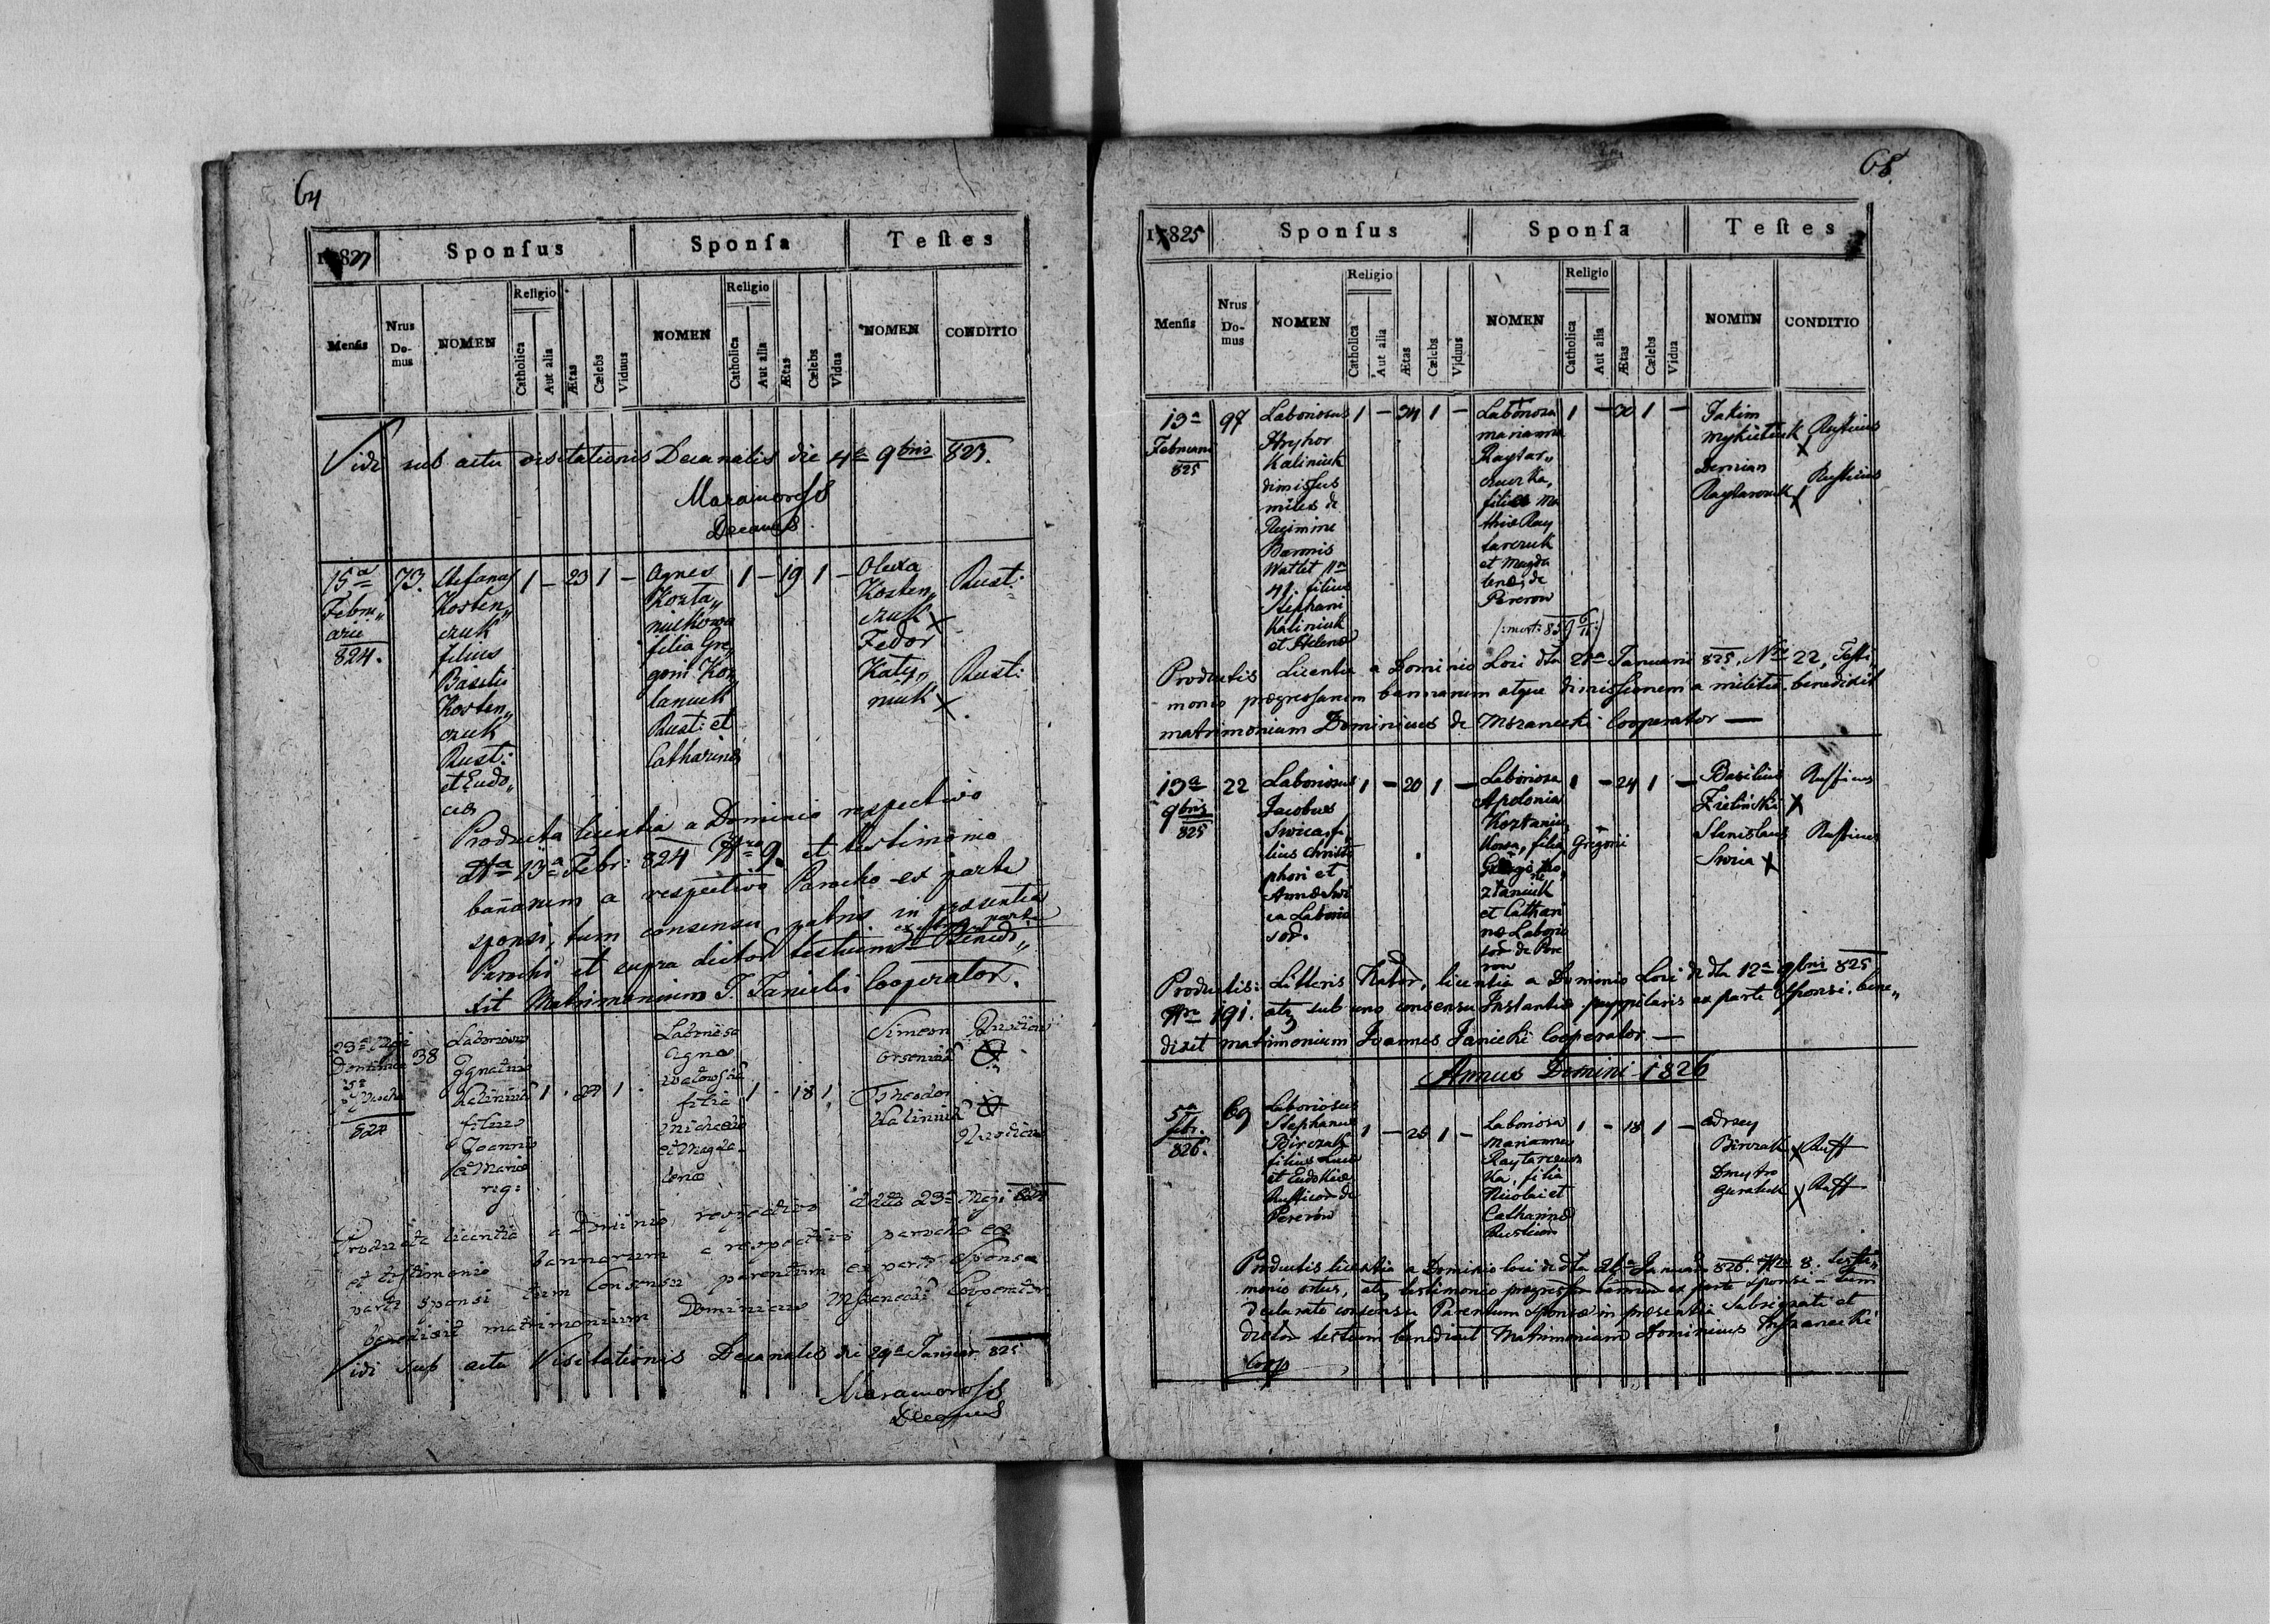 64
1824
Sponſus
Sponſa
Teſtes
Menſis
Nrus Do-mus
NOMEN
Religio
Catholica
Aut alia
Ætas
Cælebs
Viduus
NOMEN
Religio
Catholica
Aut alia
Ætas
Cælebs
Vidua
NOMEN
CONDITIO
Vidi sub actu visitationis Decanalis die 4a 9bris 823.
Maramorosz
Decanus
15a
Febru„
arii
824.
73.
Stefanus
Kosten„
czuk
filius
Basilii
Kosten„
czuk
Rust:
et Eudo„
ciæ
1 – 23 1 –
Agnes
Kozta„
niukowa
filia Gre„
gorii Koz„
taniuk
Rust: et
Catharinæ
1 – 19 1 –
Olexa
Kosten„
czuk X
Fedor
Katy„
niuk X
Rust:
Rust:
Producta licentia a Dominio respectivo
dtta 13a Febr: 824 Nro 9. et testimonio
bañorum a respectivo Parocho ex parte
sponsi, tum consensu patris in præsentia
Parochi et supra dictor testium Benedi„
xit Matrimonium J. Janicki Cooperator.
23a Maji
Dominica
5a
Pascha
824
38
Laboriosus
Ignatius
Kaliniuk
filius
Joannis
et Mariæ
1 . 24 1 .
Laboriosa
Agnes
filia
Michaelis
et Magda-
lenæ
1 . 18 1
Simeon
Arseniuk
Theodor
Kaliniuk
Rusticus
Rusticus
Producta licentia a Dominio respectivo ddto 23a Maji 824
et testimonio bannorum a respectivo parocho ex
parte sponsi tum Consensu parentum ex parte Sponsæ
benedixit matrimonium Dominicus Mszanecki Cooperator
Vidi sub actu Visitationis Decanalis die 29a Januar 825
Maramorosz
Decanus
65
1825
Sponſus
Sponſa
Teſtes
Menſis
Nrus Do-mus
NOMEN
Religio
Catholica
Aut alia
Ætas
Cælebs
Viduus
NOMEN
Religio
Catholica
Aut alia
Ætas
Cælebs
Vidua
NOMEN
CONDITIO
13a
Februarii
825
97
Laboriosus
Hryhor
Kaliniuk
dimissus
miles de
Regimine
Baronis
Watlet Nro
41. filius
Stephani
Kaliniuk
et Helenæ
1 – 34 1 –
Laboriosa
Marianna
Raytar„
czuczka,
filia Ma
thiæ Ray
tarczuk
et Magda
lenæ, de
Pererow
1 – 20 1 –
Jakim
Mykietiuk X
Demian
Raytarczuk X
Rusticus
Rusticus
Productis Licentia a Dominio Loci dtta 28a Januarii 825. Nro 22, Testi„
monio progressarum bannorum atque dimissionem a militia, benedixit
matrimonium Dominicus de Mszanecki Cooperator —
13a
9bris
825
22
Laboriosus
Jacobus
Swica, fi„
lius Christo
phori et
Annæ Swi
ca Laborio
sor.
1 – 20 1 –
Laboriosa
Apolonia
Koztaniu
kowa, filia Gregorii
Ko
ztaniuk
et Cathari
næ Laborio
sor de Pere
row
1 – 24 1 –
Basilius
Zielinski X
Stanislaus
Swica X
Rusticus
Rusticus
Productis: Litteris Nator, licentia a Dominio Loci de dtta 12a 9bris 825
Nro 191. atq sub uno consensu Instantiæ puppilaris ex parte Sponsi, bene„
dixit matrimonium Joannes Janicki Cooperator —
Annus Domini 1826
5a
Febr.
826.
69
Laboriosus
Stephanus
Birczak
filius Lucæ
et Eudokiæ
Rusticor de
Pererów
1 – 25 1 –
Laboriosa
Marianna
Raytarczucz
ka, filia
Nicolai et
Catharinæ
Rusticor
1 – 18 1 –
Andrzey
Birczak X
Dmytro
X
Rust
Rust
Productis licentia a Dominio loci de dtta 26a Januarii 826. Nro 8. testi„
monio ortus, atq testimonio progress bannor ex parte sponsi – tum
declarato consensu Parentum sponsæ in præsentia Subsignati et
dictor testium benedixit Matrimonium Dominicus Mszanecki
Coop